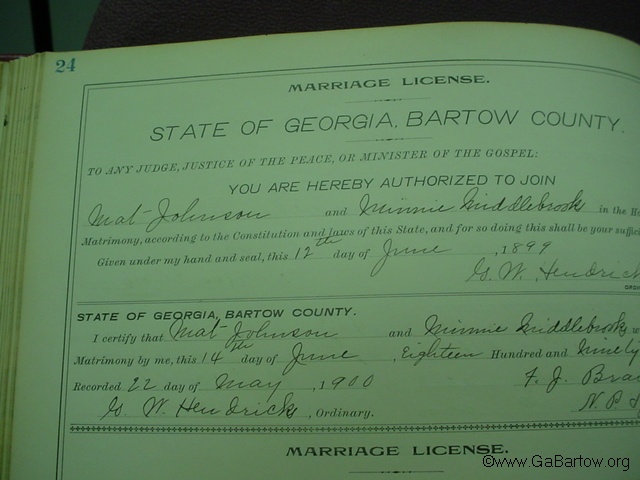 24
MARRIAGE LICENSE.
STATE OF GEORGIA, BARTOW COUNTY.
TO ANY JUDGE, JUSTICE OF THE PEACE, OR MINISTER OF THE GOSPEL:
YOU ARE HEREBY AUTHORIZED TO JOIN
Mat Johnson and Minnie Middlebrook in the
Matrimony, according to the Constitution and laws of this State, and for so doing this shall be your
Given under my hand and seal, this 12th day of June, 1899
G. W. Hendrick
STATE OF GEORGIA, BARTOW COUNTY.
I certify that Mat Johnson and Minnie Middlebrooks
Matrimony by me, this 14th day of June, Eighteen Hundred and Ninety
Recorded 22 day of May, 1900 F. J.
G. W. Hendricks, Ordinary. N. P.
MARRIAGE LICENSE.
©www.GaBartow.org